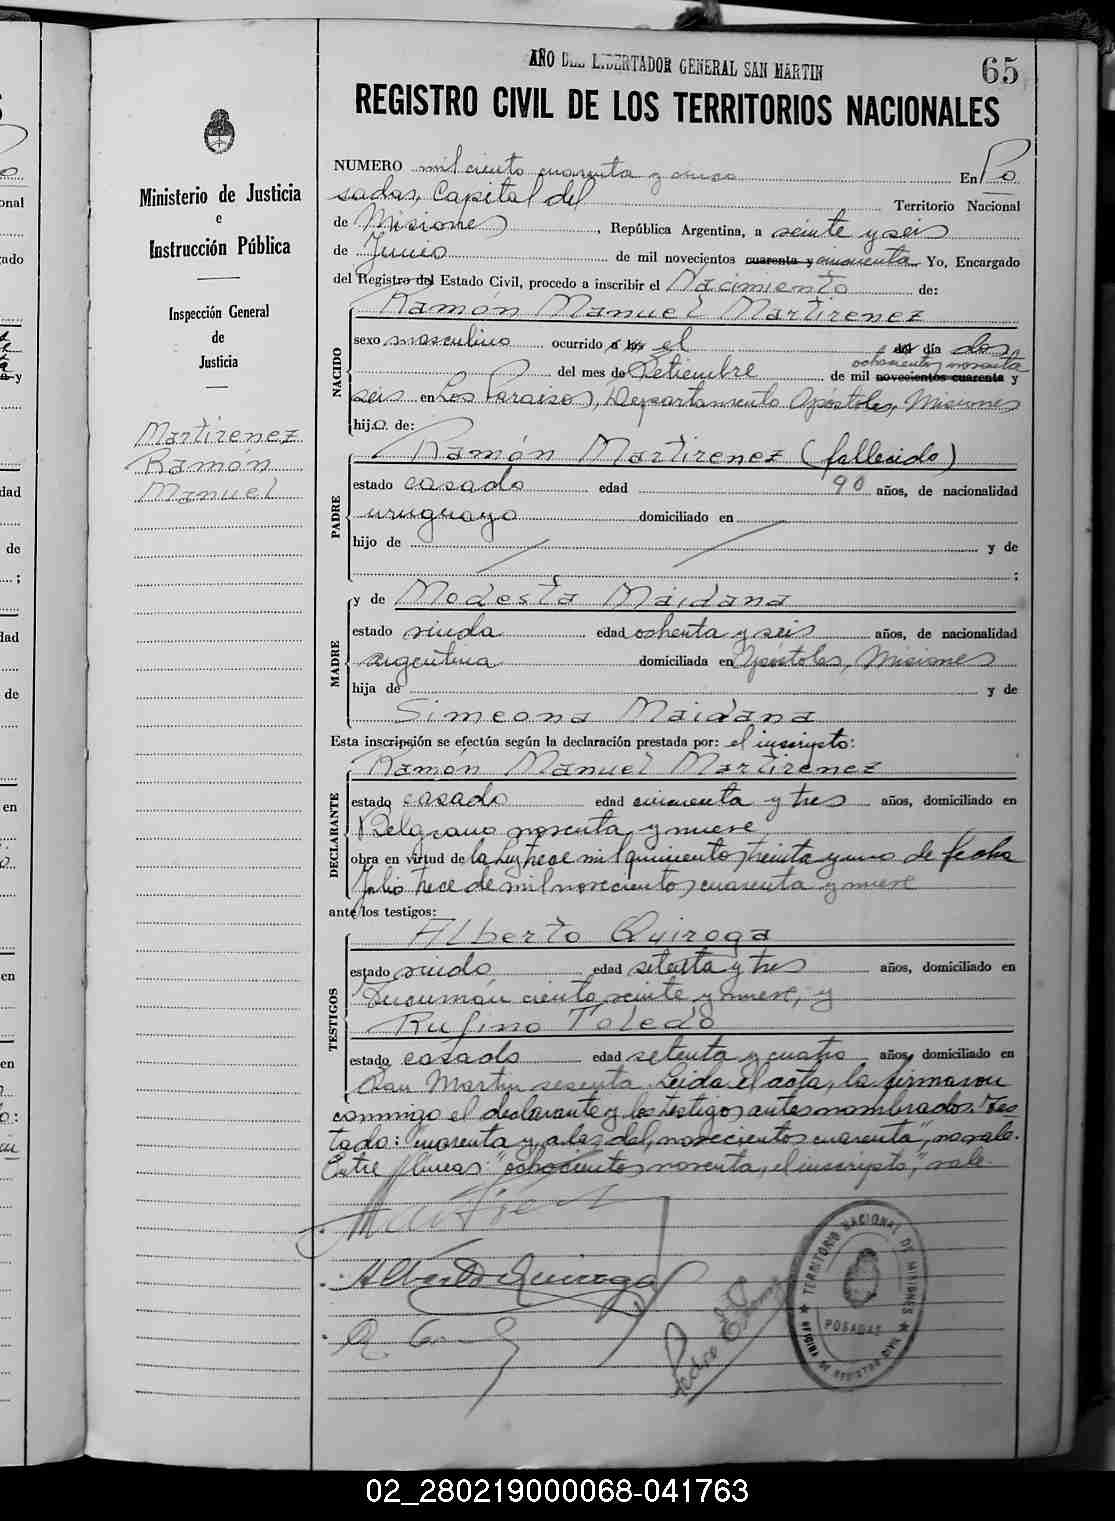 AÑO DEL LIBERTADOR GENERAL SAN MARTIN
65
REGISTRO CIVIL DE LOS TERRITORIOS NACIONALES
Ministerio de Justicia
e
Instrucción Pública
Inspección General
de
Justicia
Martirenez
Ramón
Manuel
NUMERO mil ciento cuarenta y cinco En Po
sadas, Capital del Territorio Nacional
de Misiones, República Argentina, a veinte y seis
de Junio de mil novecientos cuarenta y cincuenta Yo, Encargado
del Registro del Estado Civil, procedo a inscribir el Nacimiento de:
Ramón Manuel Martirenez
NACIDO
sexo masculino ocurrido a las el del día dos
ochocientos noventa
del mes de Setiembre de mil novecientos cuarenta y
seis en Los Paraisos, Departamento Apóstoles, Misiones
hijo de:
Ramón Martirenez (fallecido)
PADRE
estado casado edad 90 años, de nacionalidad
uruguayo domiciliado en
hijo de y de
;
y de Modesta Maidana
MADRE
estado viuda edad ochenta y seis años, de nacionalidad
argentina domiciliada en Apóstoles, Misiones
hija de y de
Simeona Maidana
Esta inscripsión se efectúa según la declaración prestada por: el inscripto:
Ramón Manuel Martirenez
DECLARANTE
estado casado edad cincuenta y tres años, domiciliado en
Belgrano noventa y nueve
obra en virtud de la Ley trece mil quinientos treinta y uno de fecha
Julio trece de mil novecientos cuarenta y nueve
ante los testigos:
Alberto Quiroga
TESTIGOS
estado viudo edad setenta y tres años, domiciliado en
Tucumán ciento veinte y nueve, y
Rufino Toledo
estado casado edad setenta y cuatro años, domiciliado en
San Martin sesenta. Leida el acta, la firmaron
conmigo el declarante y los testigos antes nombrados. Tes
tado: "cuarenta y, a las, del, novecientos cuarenta", no vale.
Entre líneas: "ochocientos noventa, el inscripto", vale.
Alberto Quiroga
Pedro
TERRITORIO NACIONAL DE MISIONES
POSADAS
OFICINA DE REGISTRO CIVIL
02_280219000068-041763